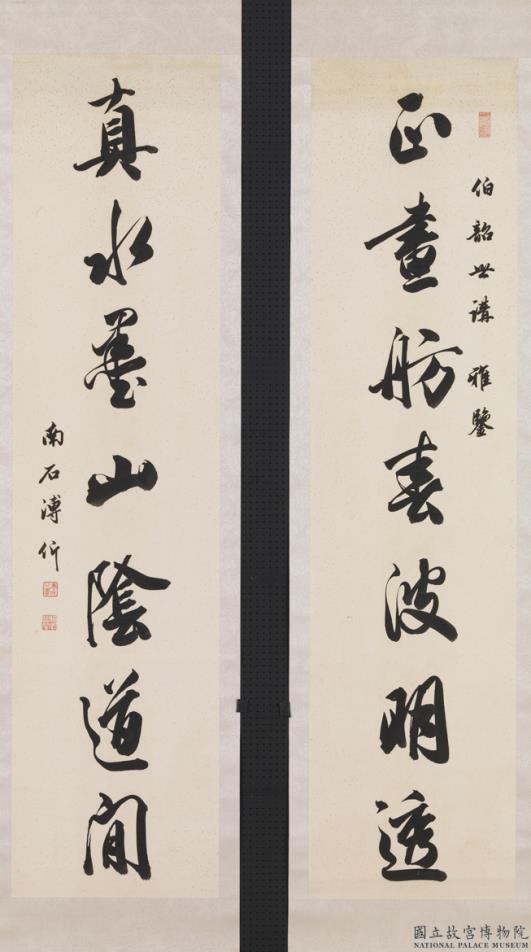 伯韶世講 雅鑒
正畫舫春波明透
真水墨山陰道間
南石溥伒
國立故宮博物院
NATIONAL PALACE MUSEUM